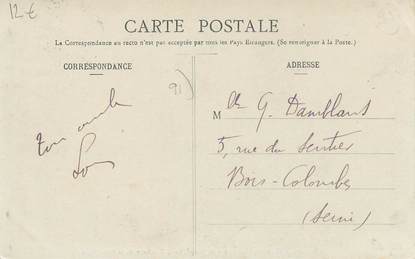 12€
CARTE POSTALE
La Correspondance au recto n'est pas acceptée par tous les Pays Etrangers. (Se renseigner à la Poste.)
CORRESPONDANCE
ADRESSE
91)
Mlle G. Damblant
5, rue du Sentier
Bois-Colombes
(Seine)
Ton